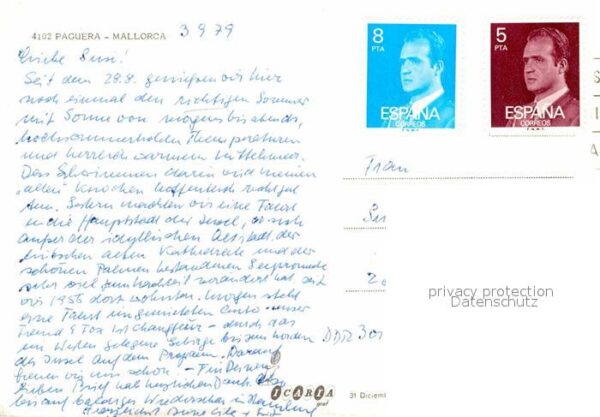 4102 PAGUERA – MALLORCA
3 9 79
Liebe Susi!
Seit dem 29.8. genießen wir hier
noch einmal den richtigen Sommer
mit Sonne von morgens bis abends,
hochsommerlichen Temperaturen
und herrlich warmem Mittelmeer.
Das Schwimmen darin wird meinen
"alten" Knochen hoffentlich recht gut
tun. Gestern machten wir eine Fahrt
in die Hauptstadt der Insel, wo sich
außer der idyllischen Altstadt, der
hübschen alten Kathedrale und der
schönen Palmen bestandenen Seepromenade
sehr viel verändert hat seit
wir 1956 dort wohnten. Morgen steht
eine Fahrt im gemieteten Auto - unser
Freund ist Chauffeur - durch das
im Westen gelegene Gebirge bis zum Norden
der Insel auf dem Programm. Darauf
freuen wir uns schon - Für Deinen
lieben Brief hab herzlichen Dank. Also
bis auf baldiges Wiedersehen in Hamburg
Herzlichst
8
PTA
ESPAÑA
CORREOS
5
PTA
ESPAÑA
CORREOS
S
I
A
Frau
DDR 301
privacy protection
Datenschutz
ICARIA
31 Diciem